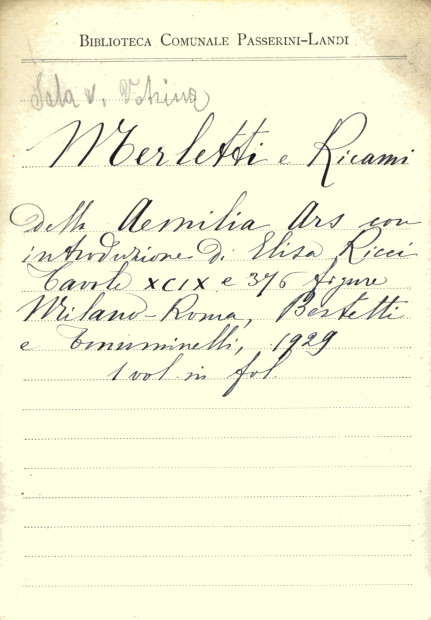 BIBLIOTECA COMUNALE PASSERINI-LANDI
Sala v. Vetrina
Merletti e Ricami
della Aemilia Ars con
introduzione di Elisa Ricci
Tavole XCIX e 376 figure
Milano-Roma, Bestetti
e Tumminelli, 1929
1 vol. in fol.